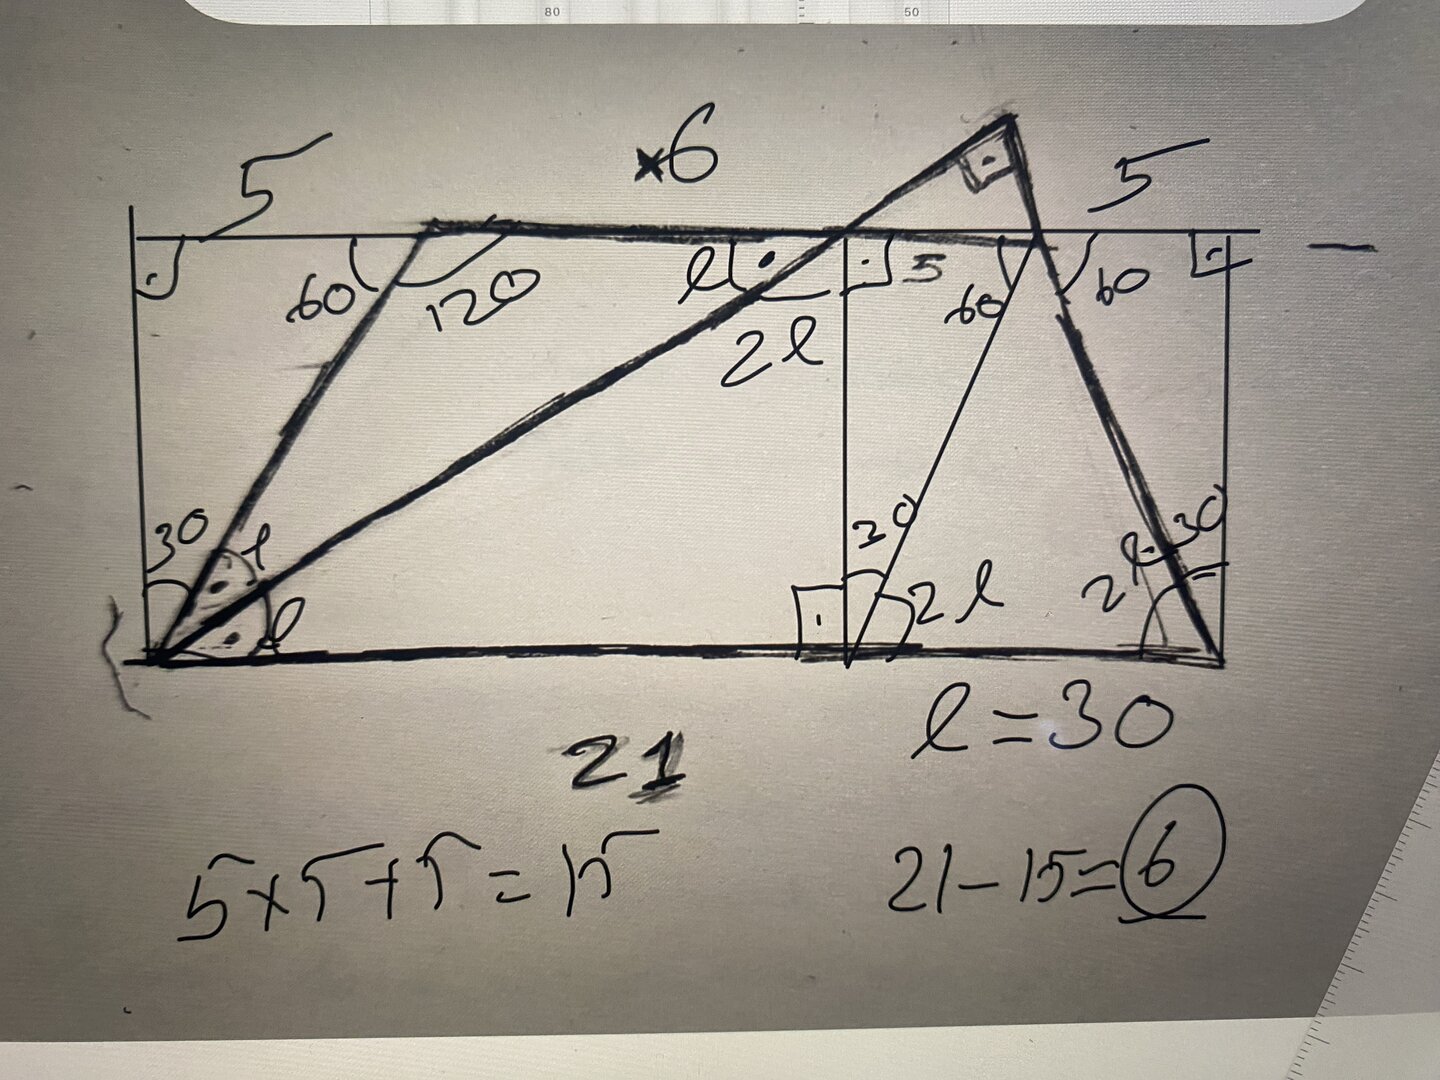 80 50
5 ×6 5
60 120 l 5 60 60
2l
30 l l 30 2l 2l 30
21
l=30
5+5+5=15
21-15=6